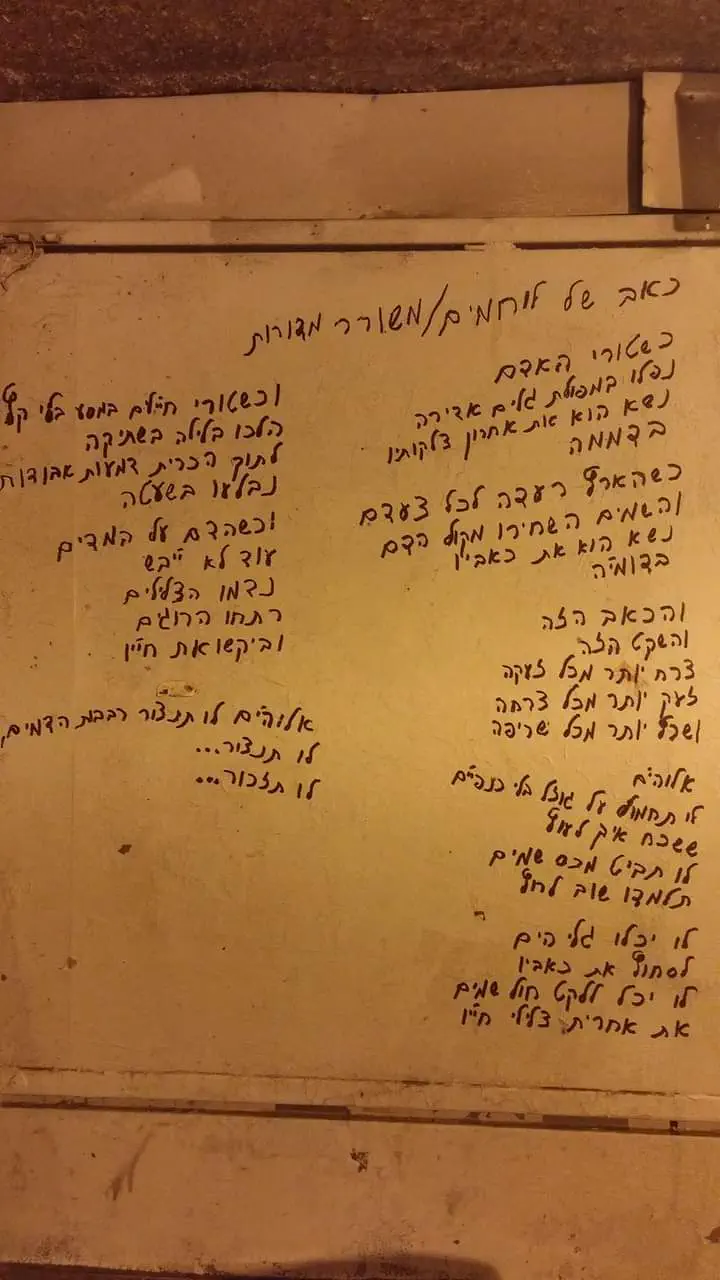 כאב של לוחמים/משורר מדורות
כשטורי האדם
נפלו במפולת גלים אדירה
נשא הוא את אחרון צלקותיו
בדממה
כשהארץ רעדה לכל צעדם
והשמים השחירו מקול הדם
נשא הוא את כאביו
בדומיה
והכאב הזה
והשקט הזה
צרח יותר מכל זעקה
זעק יותר מכל צרחה
ושרף יותר מכל שריפה
אלוהים
לו תחמול על גוזל בלי כנפיים
ששכח איך לעוף
לו תביט מכס שמים
תלמדו שוב לרחף
לו יכלו גלי הים
לסחוף את כאביו
לו יכל ללקט חול שמים
את אחרית צלילי חייו
וכשטורי חיילים במסע בלי קץ
הלכו בלילה בשתיקה
לתוך הכרית דמעות אבודות
נבלעו בשעטה
וכשהדם על המדים
עוד לא ייבש
נדמו הצלילים
רתחו הרוגים
וביקשו את חייו
אלוהים לו תנצור רבבת הדמים,
לו תנצור...
לו תזכור...